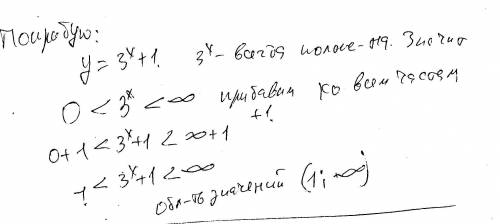 Попробую:
y = 3^x + 1. 3^x - всегда полож-на. Значит
0 < 3^x < ∞ прибавим ко всем частям
+1
0+1 < 3^x+1 < ∞+1
1 < 3^x+1 < ∞
Обл-ть значений (1; +∞)